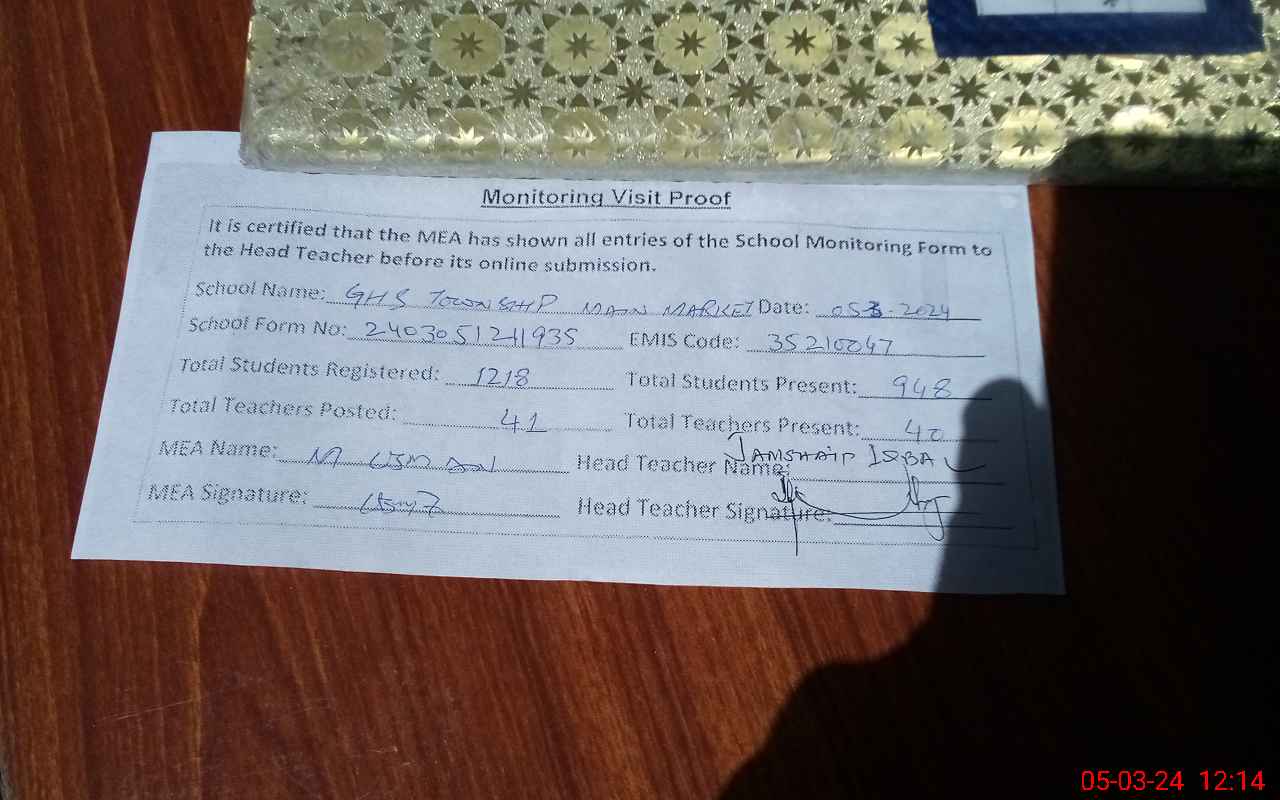 Monitoring Visit Proof
It is certified that the MEA has shown all entries of the School Monitoring Form to
the Head Teacher before its online submission.
School Name: GHS TOWNSHIP MAIN MARKET Date: 05-3-2024
School Form No: 2403051211935 EMIS Code: 35210047
Total Students Registered: 1218 Total Students Present: 948
Total Teachers Posted: 41 Total Teachers Present: 40
MEA Name: M USMAN Head Teacher Name: JAMSHAID IQBAL
MEA Signature: Head Teacher Signature:
05-03-24 12:14